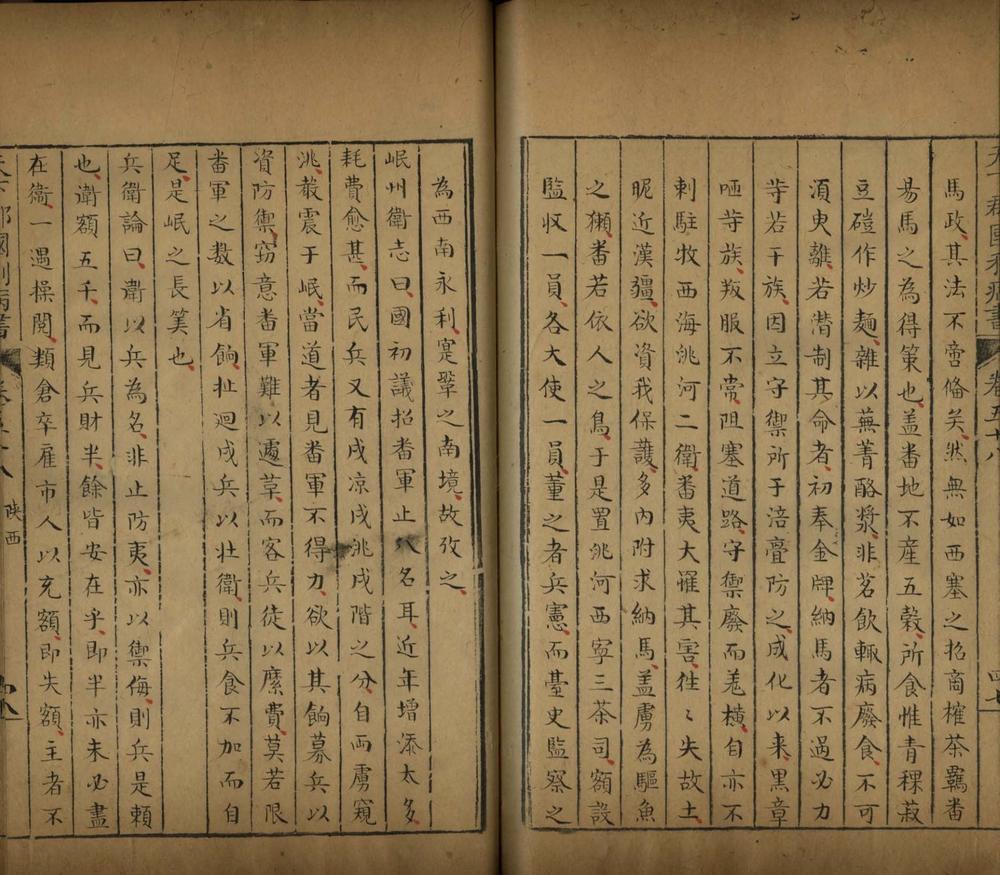 天下郡國利病書 卷五十八 四七
馬政其法不啻俻矣然無如西塞之招商榷茶羈番
易馬之為得策也盖番地不産五穀所食惟青稞菽
豆磑作炒麺雜以蕪菁酪漿非茗飲輙病癈食不可
湏臾離若潜制其命者初奉金牌納馬者不過必力
等若干族因立守禦所于涪亹防之成化以来黒章
咂等族叛服不常阻塞道路守禦廢而羗横自亦不
剌駐牧西海洮河二衛番夷大罹其害徃〻失故土
昵近漢疆欲資我保護多内附求納馬盖虜為驅魚
之獺番若依人之鳥于是置洮河西寜三茶司額設
監収一員各大使一員董之者兵憲而臺史監察之
為西南永利寔鞏之南境故攷之
岷州衛志曰國初議招番軍止八名耳近年增添太多
耗費愈甚而民兵又有戍凉戍洮戍階之分自両虜窺
洮叢震于岷當道者見番軍不得力欲以其餉募兵以
資防禦窃意番軍難以遽革而客兵徒以縻費莫若限
番軍之数以省餉扯廻戍兵以壮衛則兵食不加而自
足是岷之長筭也
兵衛論曰衛以兵為名非止防夷亦以禦侮則兵是頼
也衛額五千而見兵財半餘皆安在乎即半亦未必盡
在衛一遇操閲類倉卒雇市人以充額即失額主者不
天下郡國利病書 卷五十八 陜西